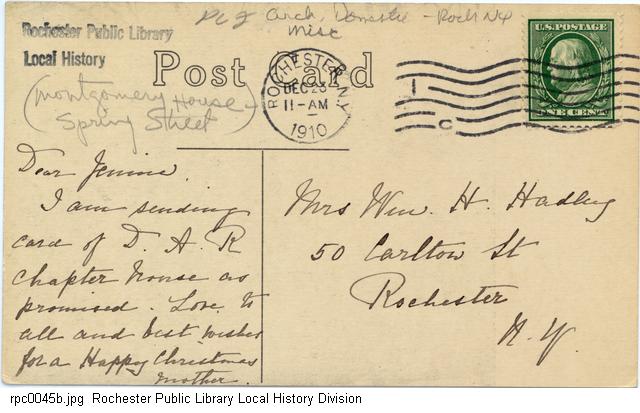 Rochester Public Library
Local History
Arch, Domestic - Roch NY
Misc
Post Card
(Montgomery House -
Spring Street)
ROCHESTER, N.Y.
DEC 23
11-AM
1910
1
C
U.S. POSTAGE
ONE CENT
Dear Jennie.
I am sending
card of D. A. R
Chapter House as
promised. Love to
all and best wishes
for a Happy Christmas
Mother.
Mrs Wm. H. Hadley
50 Carlton St
Rochester
N. Y.
rpc0045b.jpg Rochester Public Library Local History Division